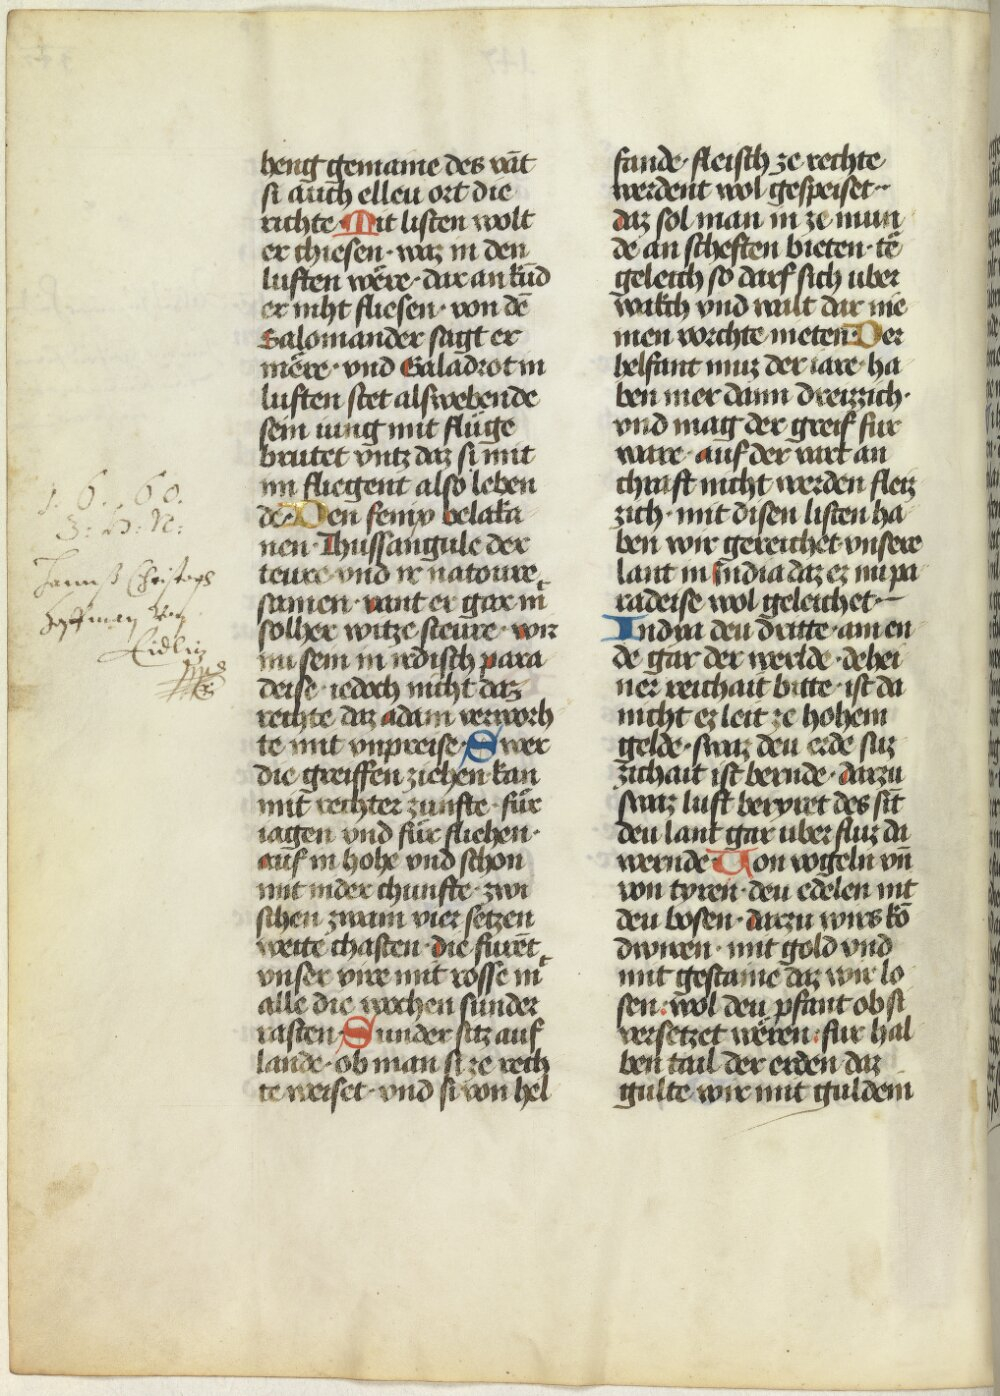 heng gemaine des vāt
si auch elleu ort die
richte · Mit listen wolt
er chiesen · waz in den
luften wêre · dar an kūd
er niht fliesen · von dē
Salomander sagt er
mêre · vnd Galadrot in
luften stet alswebende
sein iung mit flüge
brutet vntz daz si mit
im fliegent also leben
de · Den fenix belaka
nen · Thussangule der
teure · vnd ir natoure
samen · want er gar in
solher witze steure · wir
nu sein in irdisch para
deise · iedoch nicht daz
rechte daz adam verworh
te mit vnpreise · Swer
die greiffen ziehen kan
mit rechter zunfte · für
iagen vnd für fliehen ·
auf in hohe vnd schon
mit inder chunfte · zwi
schen zwain vier setzen
weite chasten · die furēt
vnser vire mit rosse in
alle die wochen sunder
rasten · Sunder saz auf
lande · ob man si ze rech
te weiset · vnd si von hel
fande · fleisch ze rechte
werdent wol gespeiset ·
daz sol man in ze mun
de an scheften bieten · tē
geleich so darf sich uber
walch vnd walt dar nie
men vorchte nieten · Der
helfant muz der iare · ha
ben mer dann dreizzich ·
vnd mag der greif fur
ware · auf der vart an
chraft nicht werden fleiz
zich · mit disen listen ha
ben wir gereichet · vnsere
lant in India daz ez nu pa
radeise wol geleichet ·
India deu dritte · am en
de gar der werlde · dehei
ner reichait bitte · ist da
nicht ez leit ze hohem
gelde · swaz deu erde suz
zichait ist bernde · darzu
swaz luft beryret des sīt
deu lant gar uber fluz da
wernde · Von vogeln vn̄
von tyren · deu edelen nit
deu bosen · darzu wirs kō
dwiren · mit gold vnd
mit gestaine daz wir lo
sen · wol deu pfant ob si
versetzet wêren · fur hal
ben tail der erden · daz
gulte wir mit guldein
1. 6. 60.
Hannß Christoph
Hoffman von
Eidling